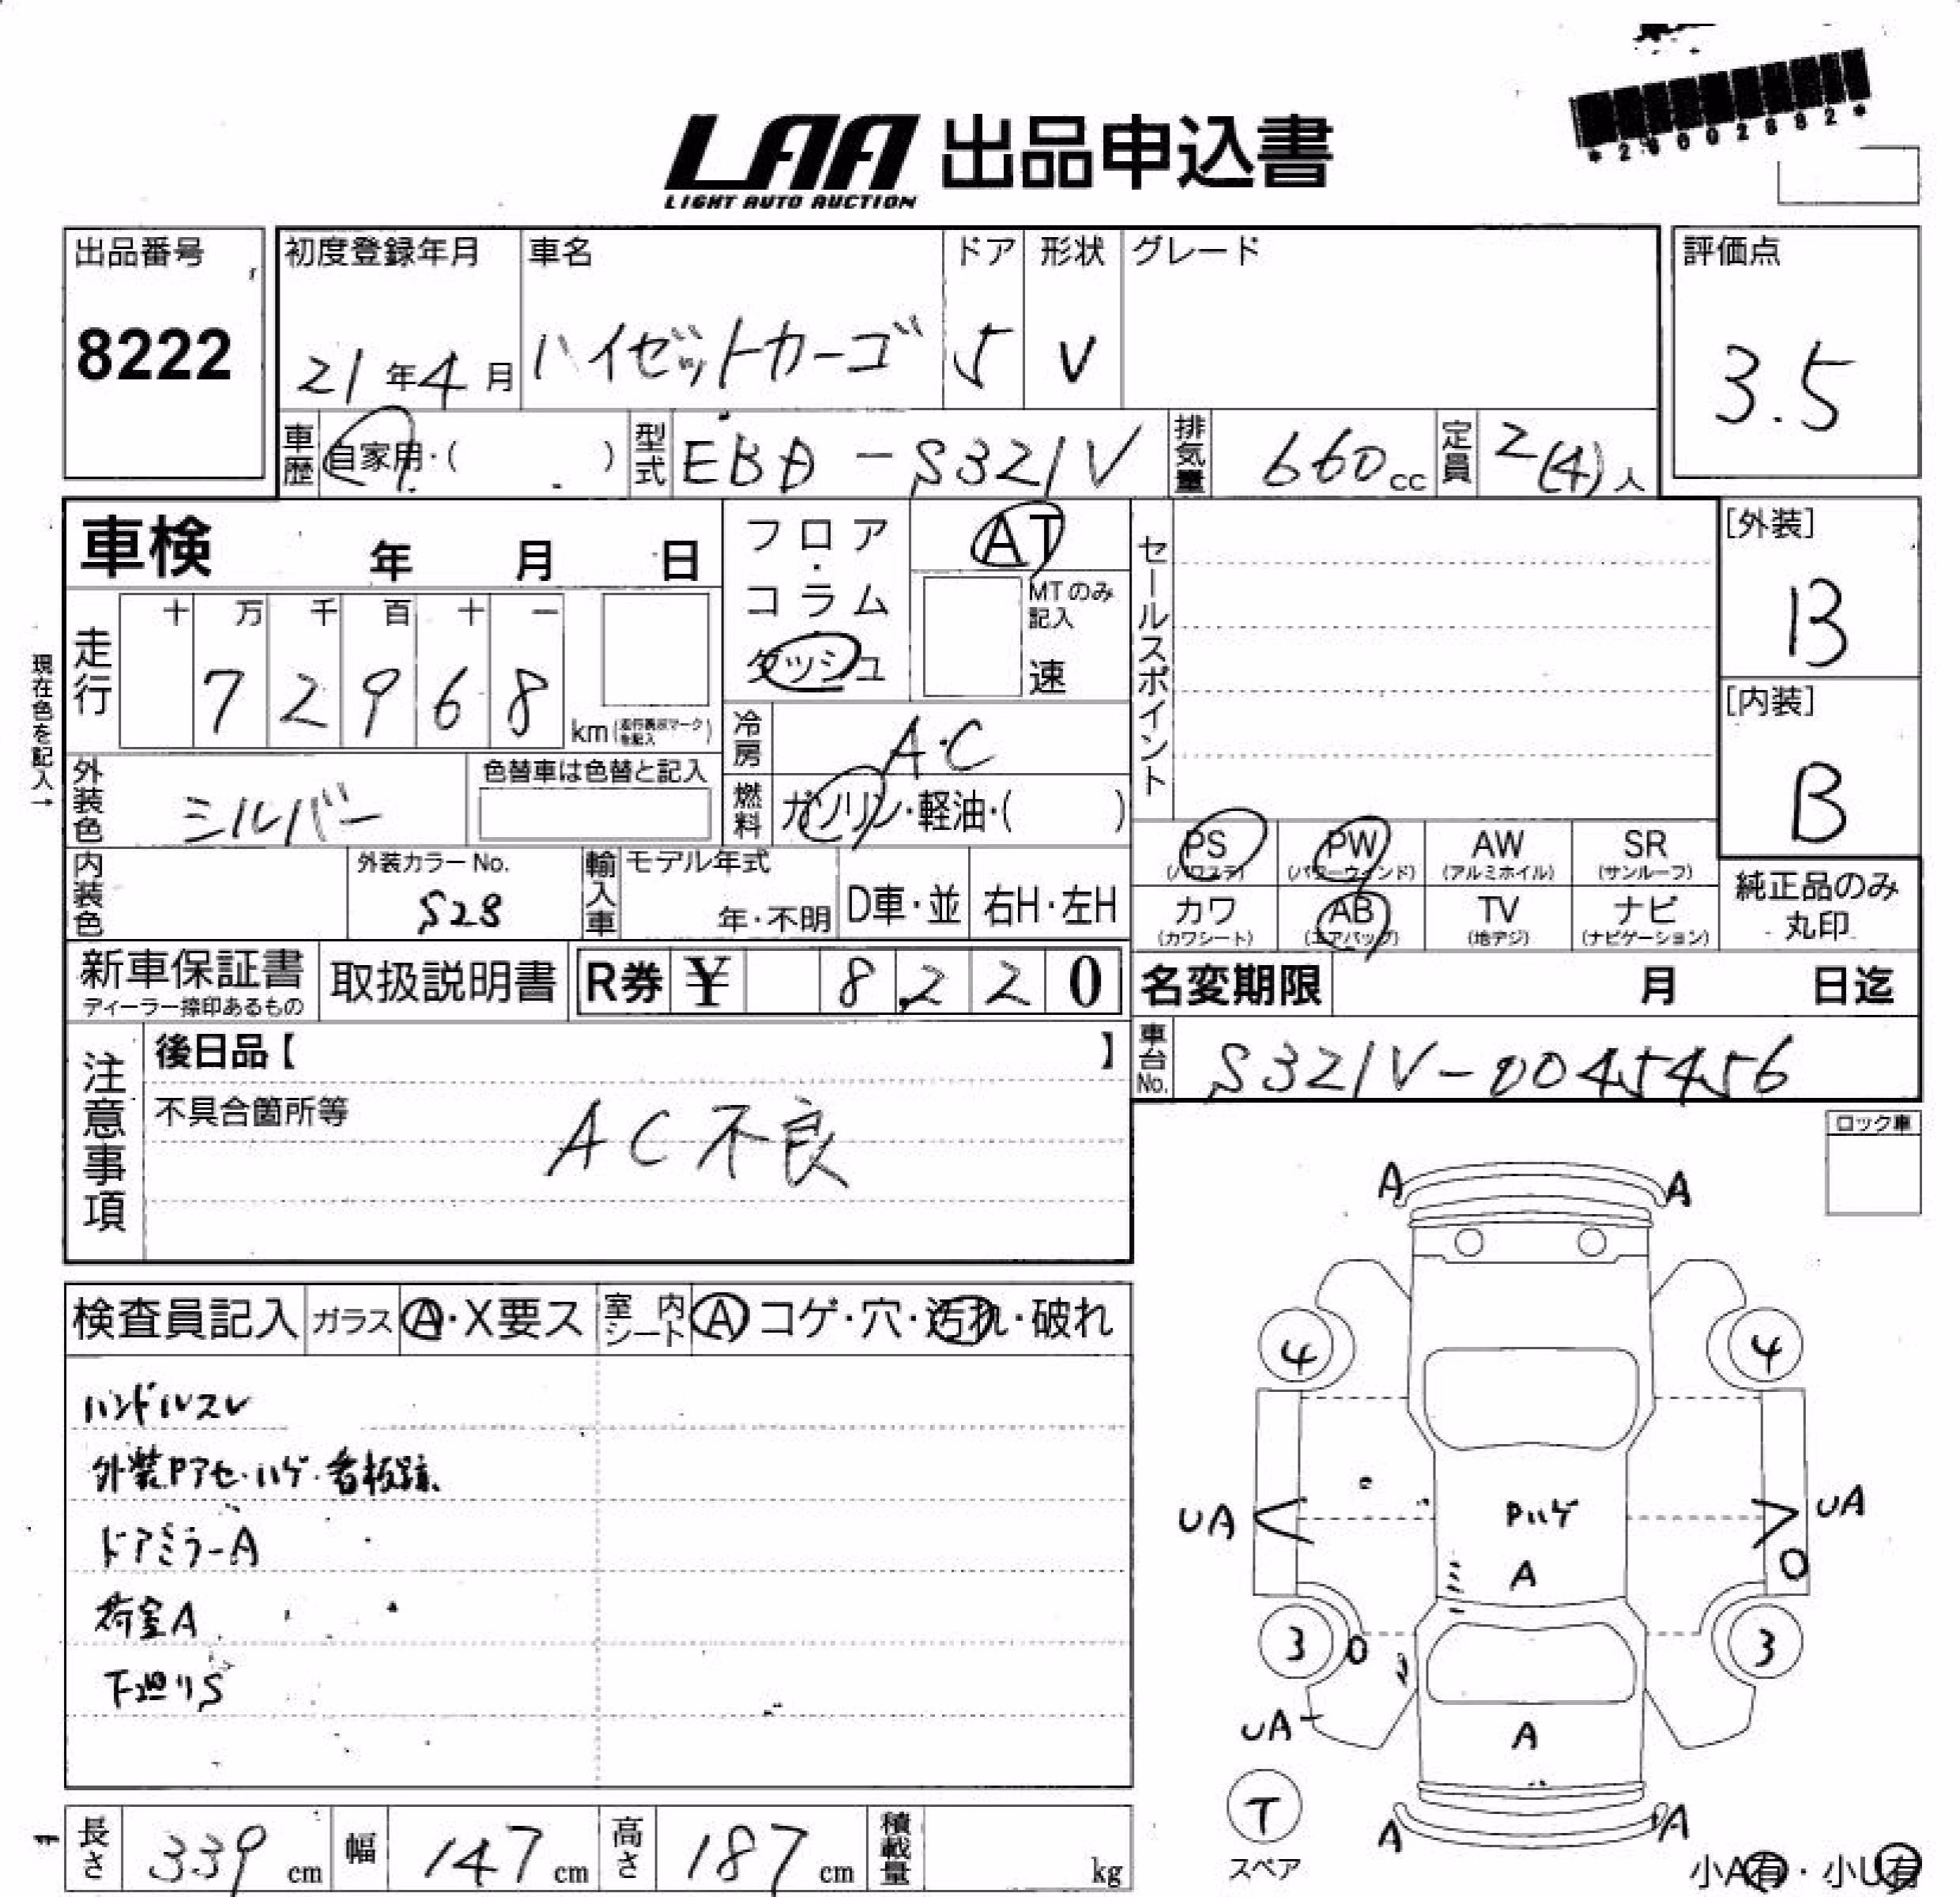 LAA 出品申込書
LIGHT AUTO AUCTION
出品番号
8222
初度登録年月
21年4月
車名
ハイゼットカーゴ
ドア
5
形状
V
グレード
評価点
3.5
車歴 自家用・( )
型式 EBD-S321V
排気量 660cc
定員 2(4)人
車検 年 月 日
フロア・コラム
ダッシュ
AT
MTのみ記入
速
セールスポイント
[外装]
B
[内装]
B
現在色を記入→
走行
十 万 千 百 十 一
7 2 9 6 8
km(走行表示マークを記入)
冷房 A・C
外装色 シルバー
色替車は色替と記入
燃料 ガソリン・軽油・( )
内装色
外装カラーNo.
S28
輸入車 モデル年式
年・不明
D車・並
右H・左H
PS (パワステ)
PW (パワーウィンド)
AW (アルミホイル)
SR (サンルーフ)
カワ (カワシート)
AB (エアバッグ)
TV (地デジ)
ナビ (ナビゲーション)
純正品のみ丸印
新車保証書
ディーラー捺印あるもの
取扱説明書
R券 ¥ 8,220
名変期限 月 日迄
車台No. S321V-0045456
注意事項
後日品【 】
不具合箇所等
AC不良
ロック車
検査員記入
ガラス A・X要ス
室内シート A コゲ・穴・汚れ・破れ
ハンドルスレ
外装Pアセ・ハゲ・看板跡
ドアミラーA
荷室A
下廻りS
A A
4 4
UA UA
Pハゲ
A
O
3 O 3
UA
A
T
スペア
A A
小A有・小U有
長さ 339cm
幅 147cm
高さ 187cm
積載量 kg